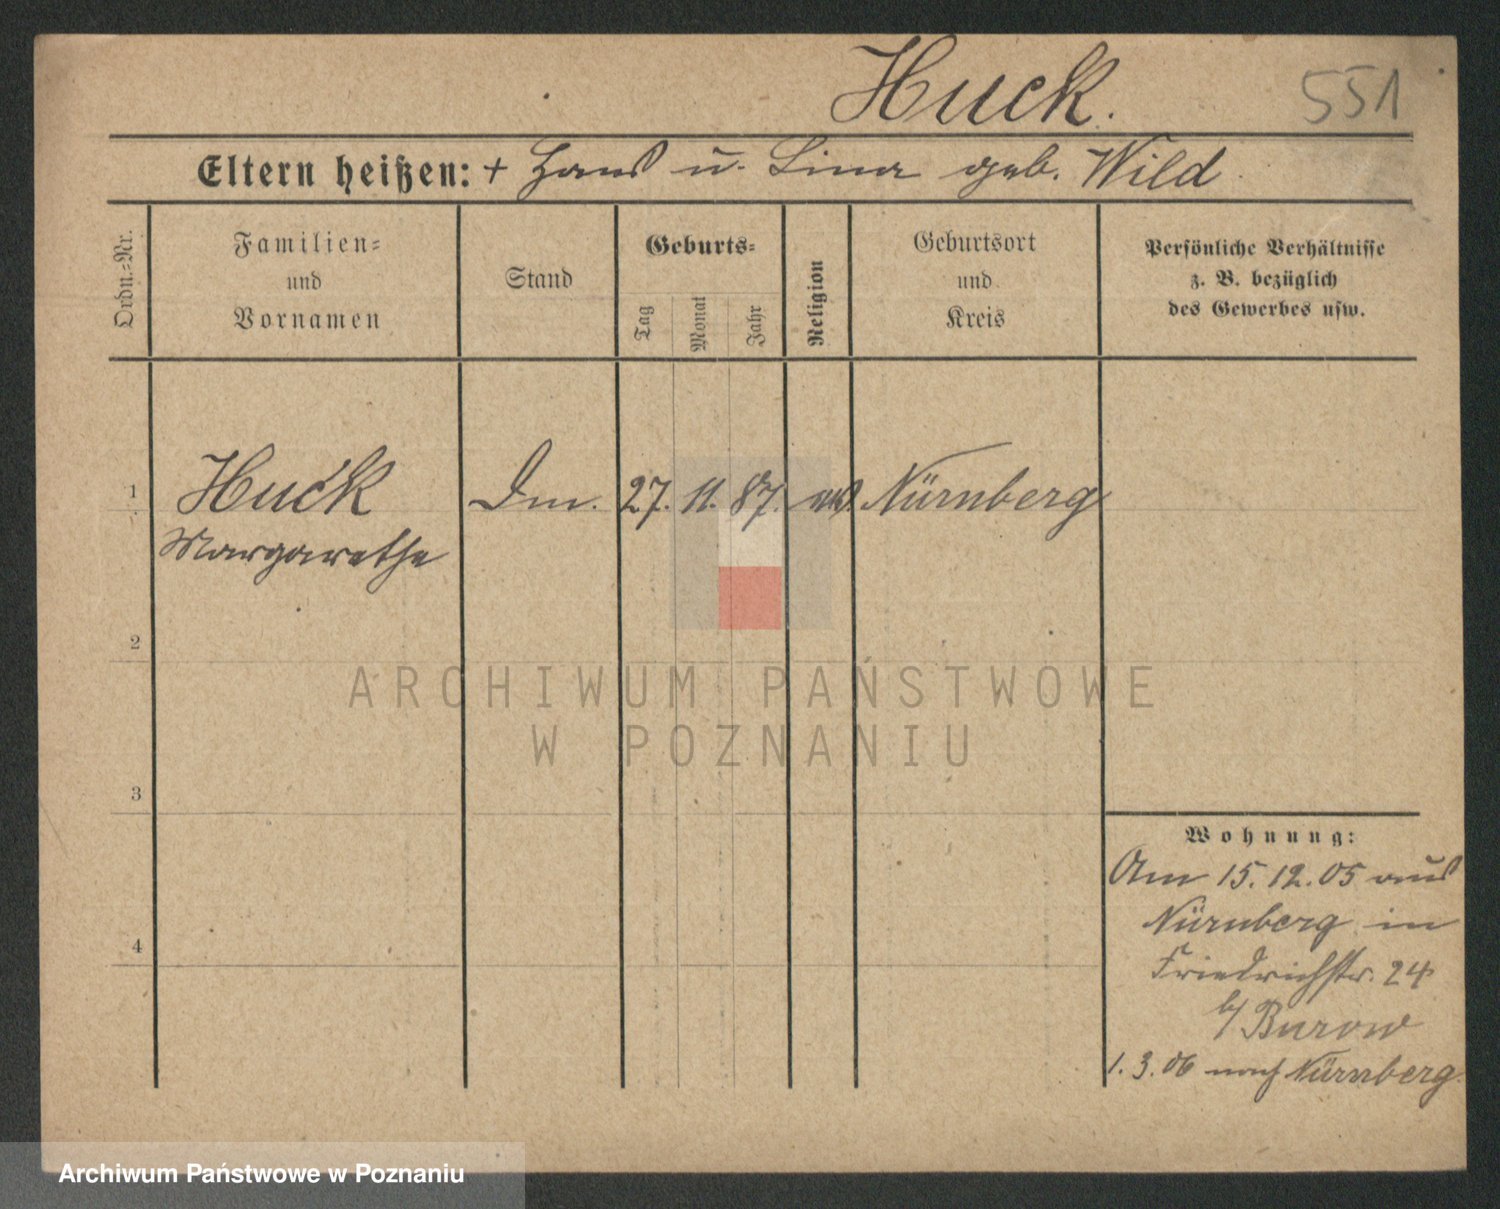 Huck. 551
Eltern heißen: + Hans u. Lina geb. Wild
Ordn.=Nr.
Familien=
und
Vornamen
Stand
Geburts=
Tag
Monat
Jahr
Religion
Geburtsort
und
Kreis
Persönliche Verhältnisse
z. B. bezüglich
des Gewerbes usw.
1 Huck 27. 11. 87. Nürnberg
Margarethe
2
3
4
ARCHIWUM PAŃSTWOWE
W POZNANIU
Wohnung:
Am 15.12.05 aus
Nürnberg in
Friedrichstr. 24
b/ Burow
1.3.06 nach Nürnberg.
Archiwum Państwowe w Poznaniu